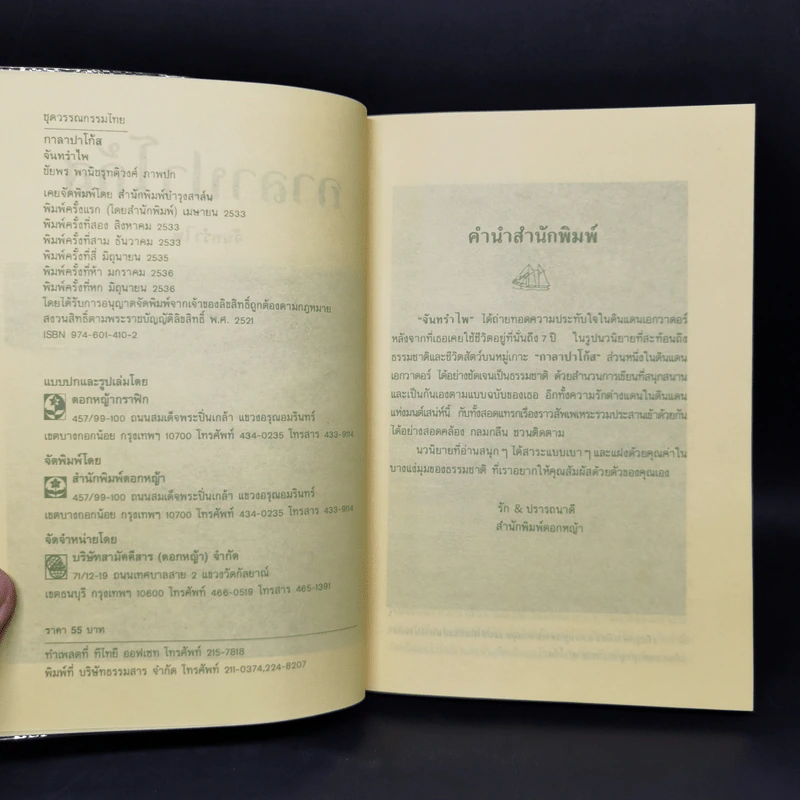 ชุดวรรณกรรมไทย
กาลาปาโก้ส
จันทรำไพ
ชัยพร พานิชรุทติวงศ์ ภาพปก
เคยจัดพิมพ์โดย สำนักพิมพ์บำรุงสาส์น
พิมพ์ครั้งแรก (โดยสำนักพิมพ์) เมษายน 2533
พิมพ์ครั้งที่สอง สิงหาคม 2533
พิมพ์ครั้งที่สาม ธันวาคม 2533
พิมพ์ครั้งที่สี่ มิถุนายน 2535
พิมพ์ครั้งที่ห้า มกราคม 2536
พิมพ์ครั้งที่หก มิถุนายน 2536
โดยได้รับการอนุญาตจัดพิมพ์จากเจ้าของลิขสิทธิ์ถูกต้องตามกฎหมาย
สงวนสิทธิ์ตามพระราชบัญญัติลิขสิทธิ์ พ.ศ. 2521
ISBN 974-601-410-2
แบบปกและรูปเล่มโดย
ดอกหญ้ากราฟิก
457/99-100 ถนนสมเด็จพระปิ่นเกล้า แขวงอรุณอมรินทร์
เขตบางกอกน้อย กรุงเทพฯ 10700 โทรศัพท์ 434-0235 โทรสาร 433-9114
จัดพิมพ์โดย
สำนักพิมพ์ดอกหญ้า
457/99-100 ถนนสมเด็จพระปิ่นเกล้า แขวงอรุณอมรินทร์
เขตบางกอกน้อย กรุงเทพฯ 10700 โทรศัพท์ 434-0235 โทรสาร 433-9114
จัดจำหน่ายโดย
บริษัทสามัคคีสาร (ดอกหญ้า) จำกัด
71/12-19 ถนนเทศบาลสาย 2 แขวงวัดกัลยาณ์
เขตธนบุรี กรุงเทพฯ 10600 โทรศัพท์ 466-0519 โทรสาร 465-1391
ราคา 55 บาท
ทำเพลตที่ ทีไทยี ออฟเซท โทรศัพท์ 215-7818
พิมพ์ที่ บริษัทธรรมสาร จำกัด โทรศัพท์ 211-0374,224-8207
คำนำสำนักพิมพ์
"จันทรำไพ" ได้ถ่ายทอดความประทับใจในดินแดนเอกวาดอร์
หลังจากที่เธอเคยใช้ชีวิตอยู่ที่นั่นถึง 7 ปี ในรูปนวนิยายที่สะท้อนถึง
ธรรมชาติและชีวิตสัตว์บนหมู่เกาะ "กาลาปาโก้ส" ส่วนหนึ่งในดินแดน
เอกวาดอร์ ได้อย่างชัดเจนเป็นธรรมชาติ ด้วยสำนวนการเขียนที่สนุกสนาน
และเป็นกันเองตามแบบฉบับของเธอ อีกทั้งความรักต่างแดนในดินแดน
แห่งมนต์เสน่ห์นี้ กับทั้งสอดแทรกเรื่องราวสัพเพเหระรวมประสานเข้าด้วยกัน
ได้อย่างสอดคล้อง กลมกลืน ชวนติดตาม
นวนิยายที่อ่านสนุก ๆ ได้สาระแบบเบา ๆ และแฝงด้วยคุณค่าใน
บางแง่มุมของธรรมชาติ ที่เราอยากให้คุณสัมผัสด้วยตัวของคุณเอง
รัก & ปรารถนาดี
สำนักพิมพ์ดอกหญ้า